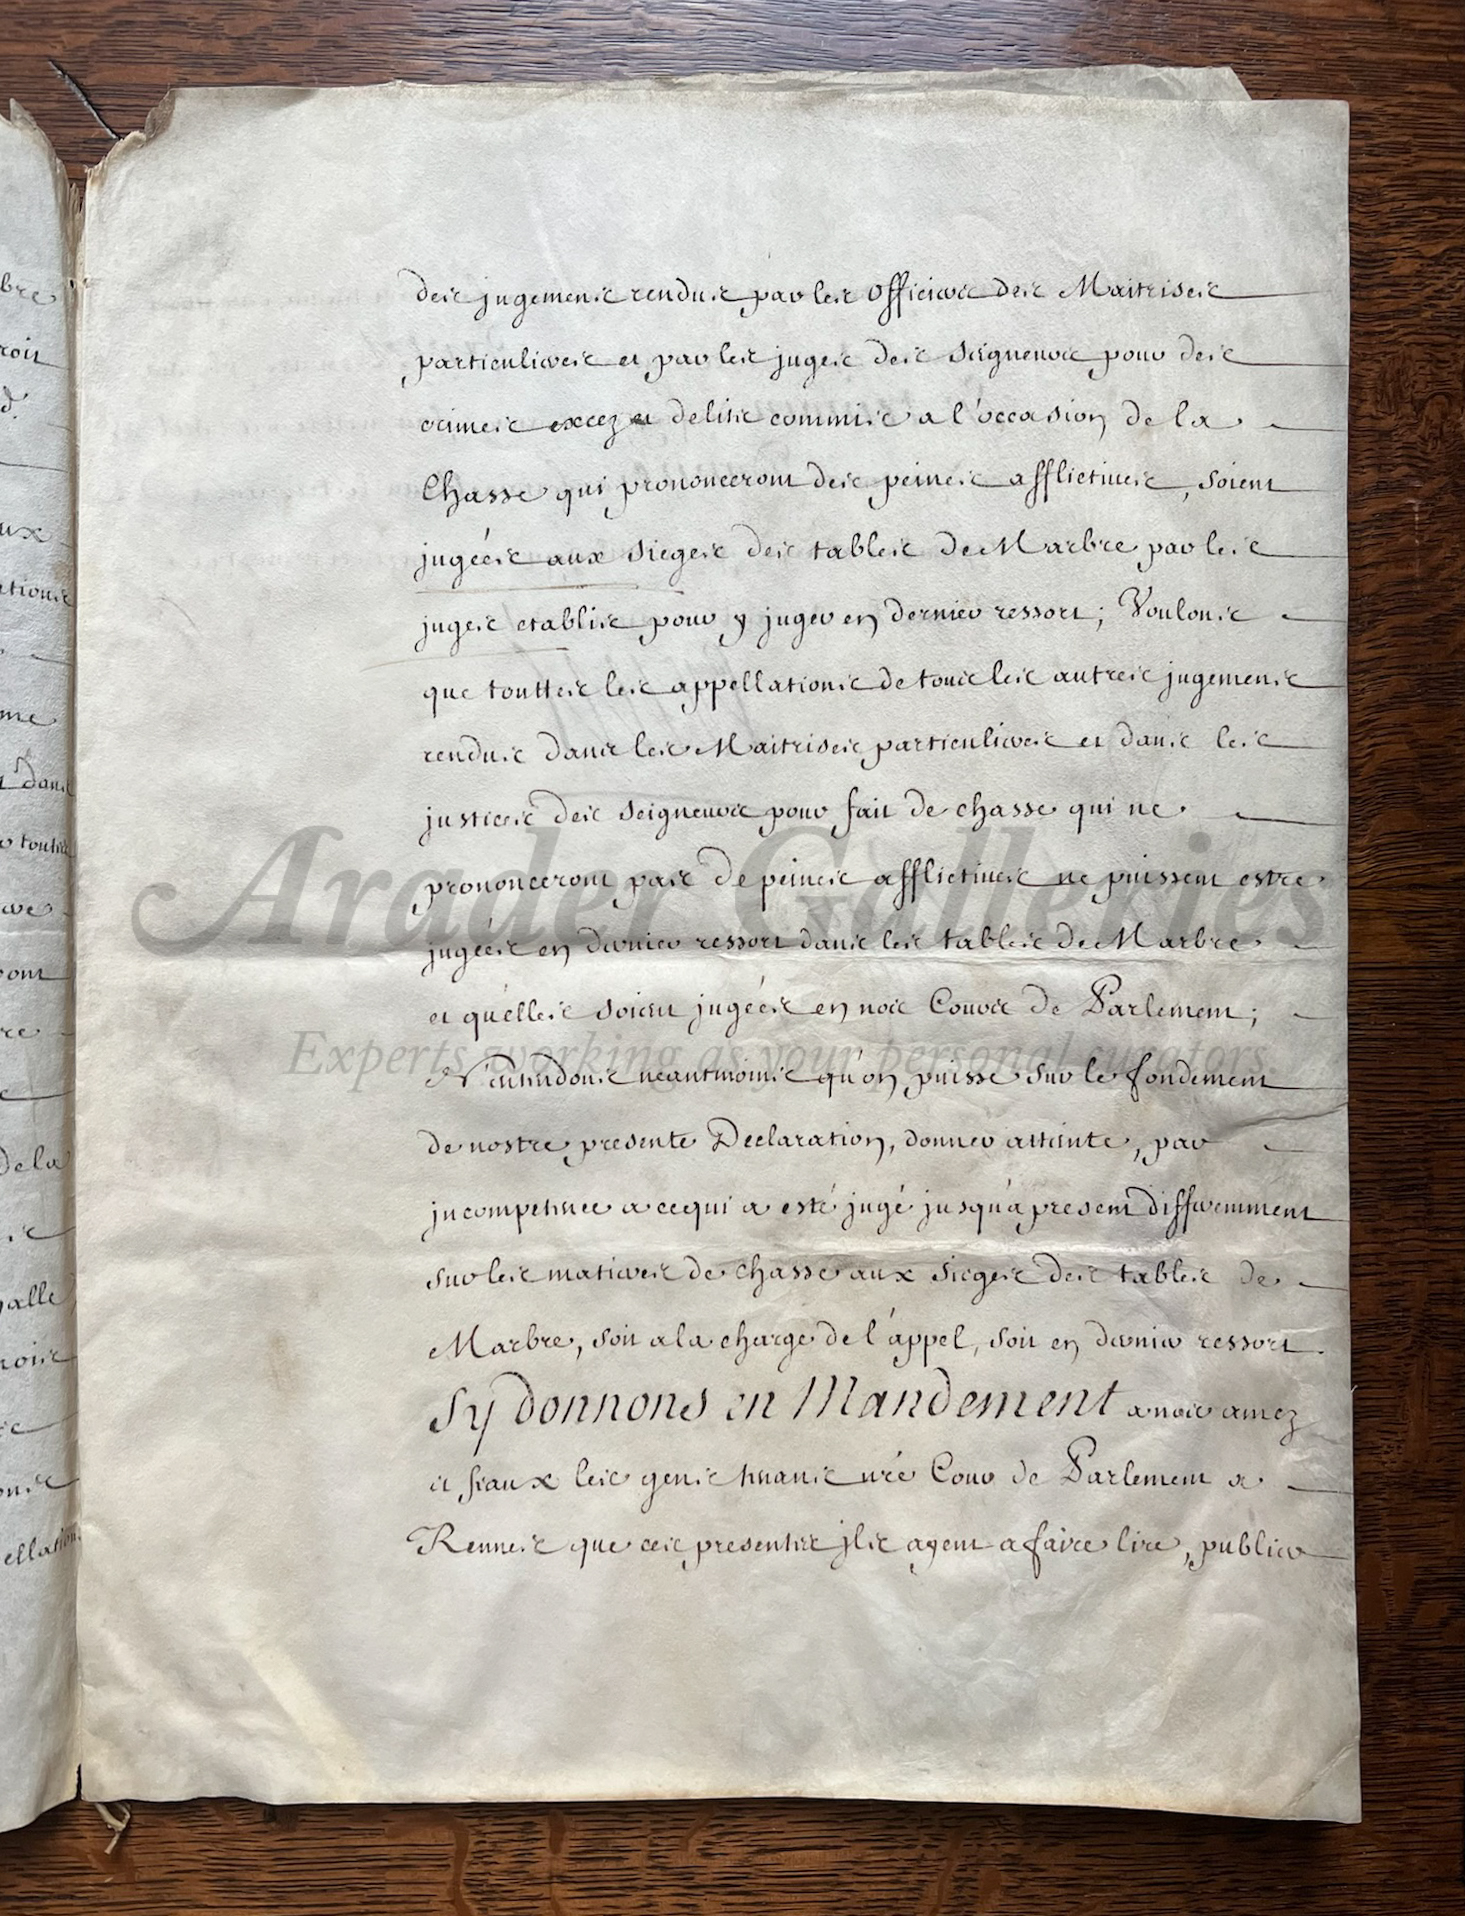 des jugemens rendus par les Officiers des Maitrises
particulieres et par les juges des Seigneurs pour des
crimes excez et delits commis a l'occasion de la
Chasse qui prononceront des peines afflictives, soient
jugées aux sieges des tables de Marbre par les
juges etablis pour y juger en dernier ressort; Voulons
que touttes les appellations de tous les autres jugemens
rendus dans les Maitrises particulieres et dans les
justices des Seigneurs pour fait de chasse qui ne
prononceront pas de peines afflictives ne puissent estre
jugées en dernier ressort dans les tables de Marbre
et qu'elles soient jugées en nos Cours de Parlement;
N'entendons neantmoins qu'on puisse sur le fondement
de nostre presente Declaration, donner atteinte, par
jncompetence a ce qui a esté jugé jusqu'a present differemment
sur les matieres de chasse aux sieges des tables de
Marbre, soit a la charge de l'appel, soit en dernier ressort.
Sy donnons en Mandement a nos amez
et feaux les gens tenans nre Cour de Parlement a
Rennes que ces presentes jls ayent a faire lire, publier
Arader Galleries
Experts working as your personal curators
bre
roit
d.
ux
ations
me
dans
toutes
ont
re
de la
alle
ellation